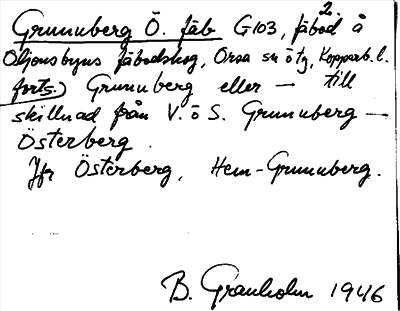 Grunuberg Ö. fäb G103, fäbod å
2.
Öljonsbyns fäbodskog, Orsa sn ö tg, Kopparb. l.
forts.) Grunuberg eller — till
skillnad från V. o S. Grunuberg —
Österberg.
Jfr Österberg, Hem-Grunuberg.
B. Granholm 1946